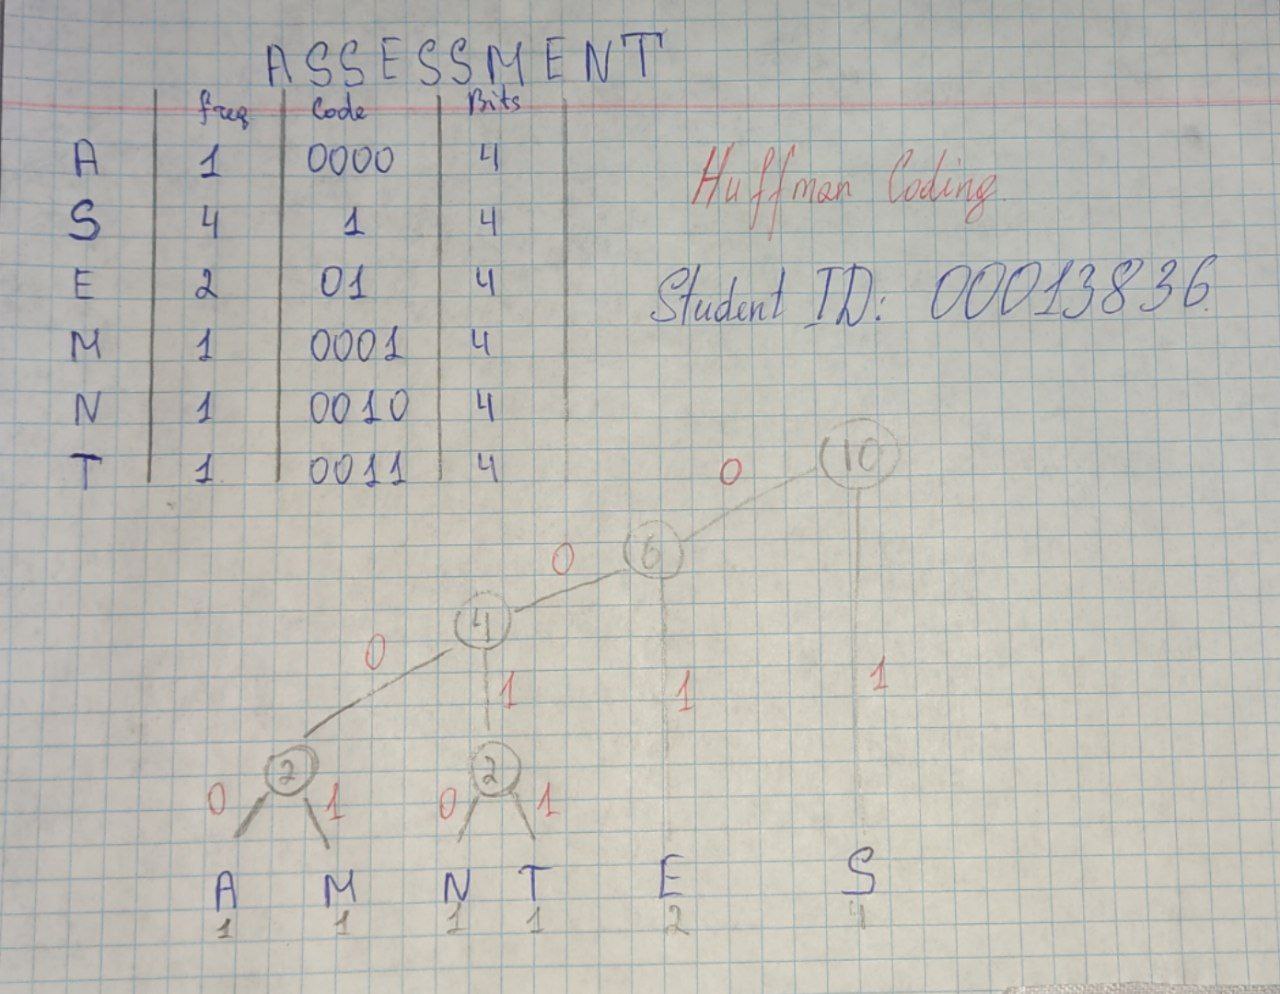 ASSESSMENT
freq Code Bits
A 1 0000 4
S 4 1 4
E 2 01 4
M 1 0001 4
N 1 0010 4
T 1 0011 4
Huffman Coding.
Student ID: 00013836.
10
0
6
0
4
0
1 1 1
2 2
0 1 0 1
A M N T E S
1 1 1 1 2 4